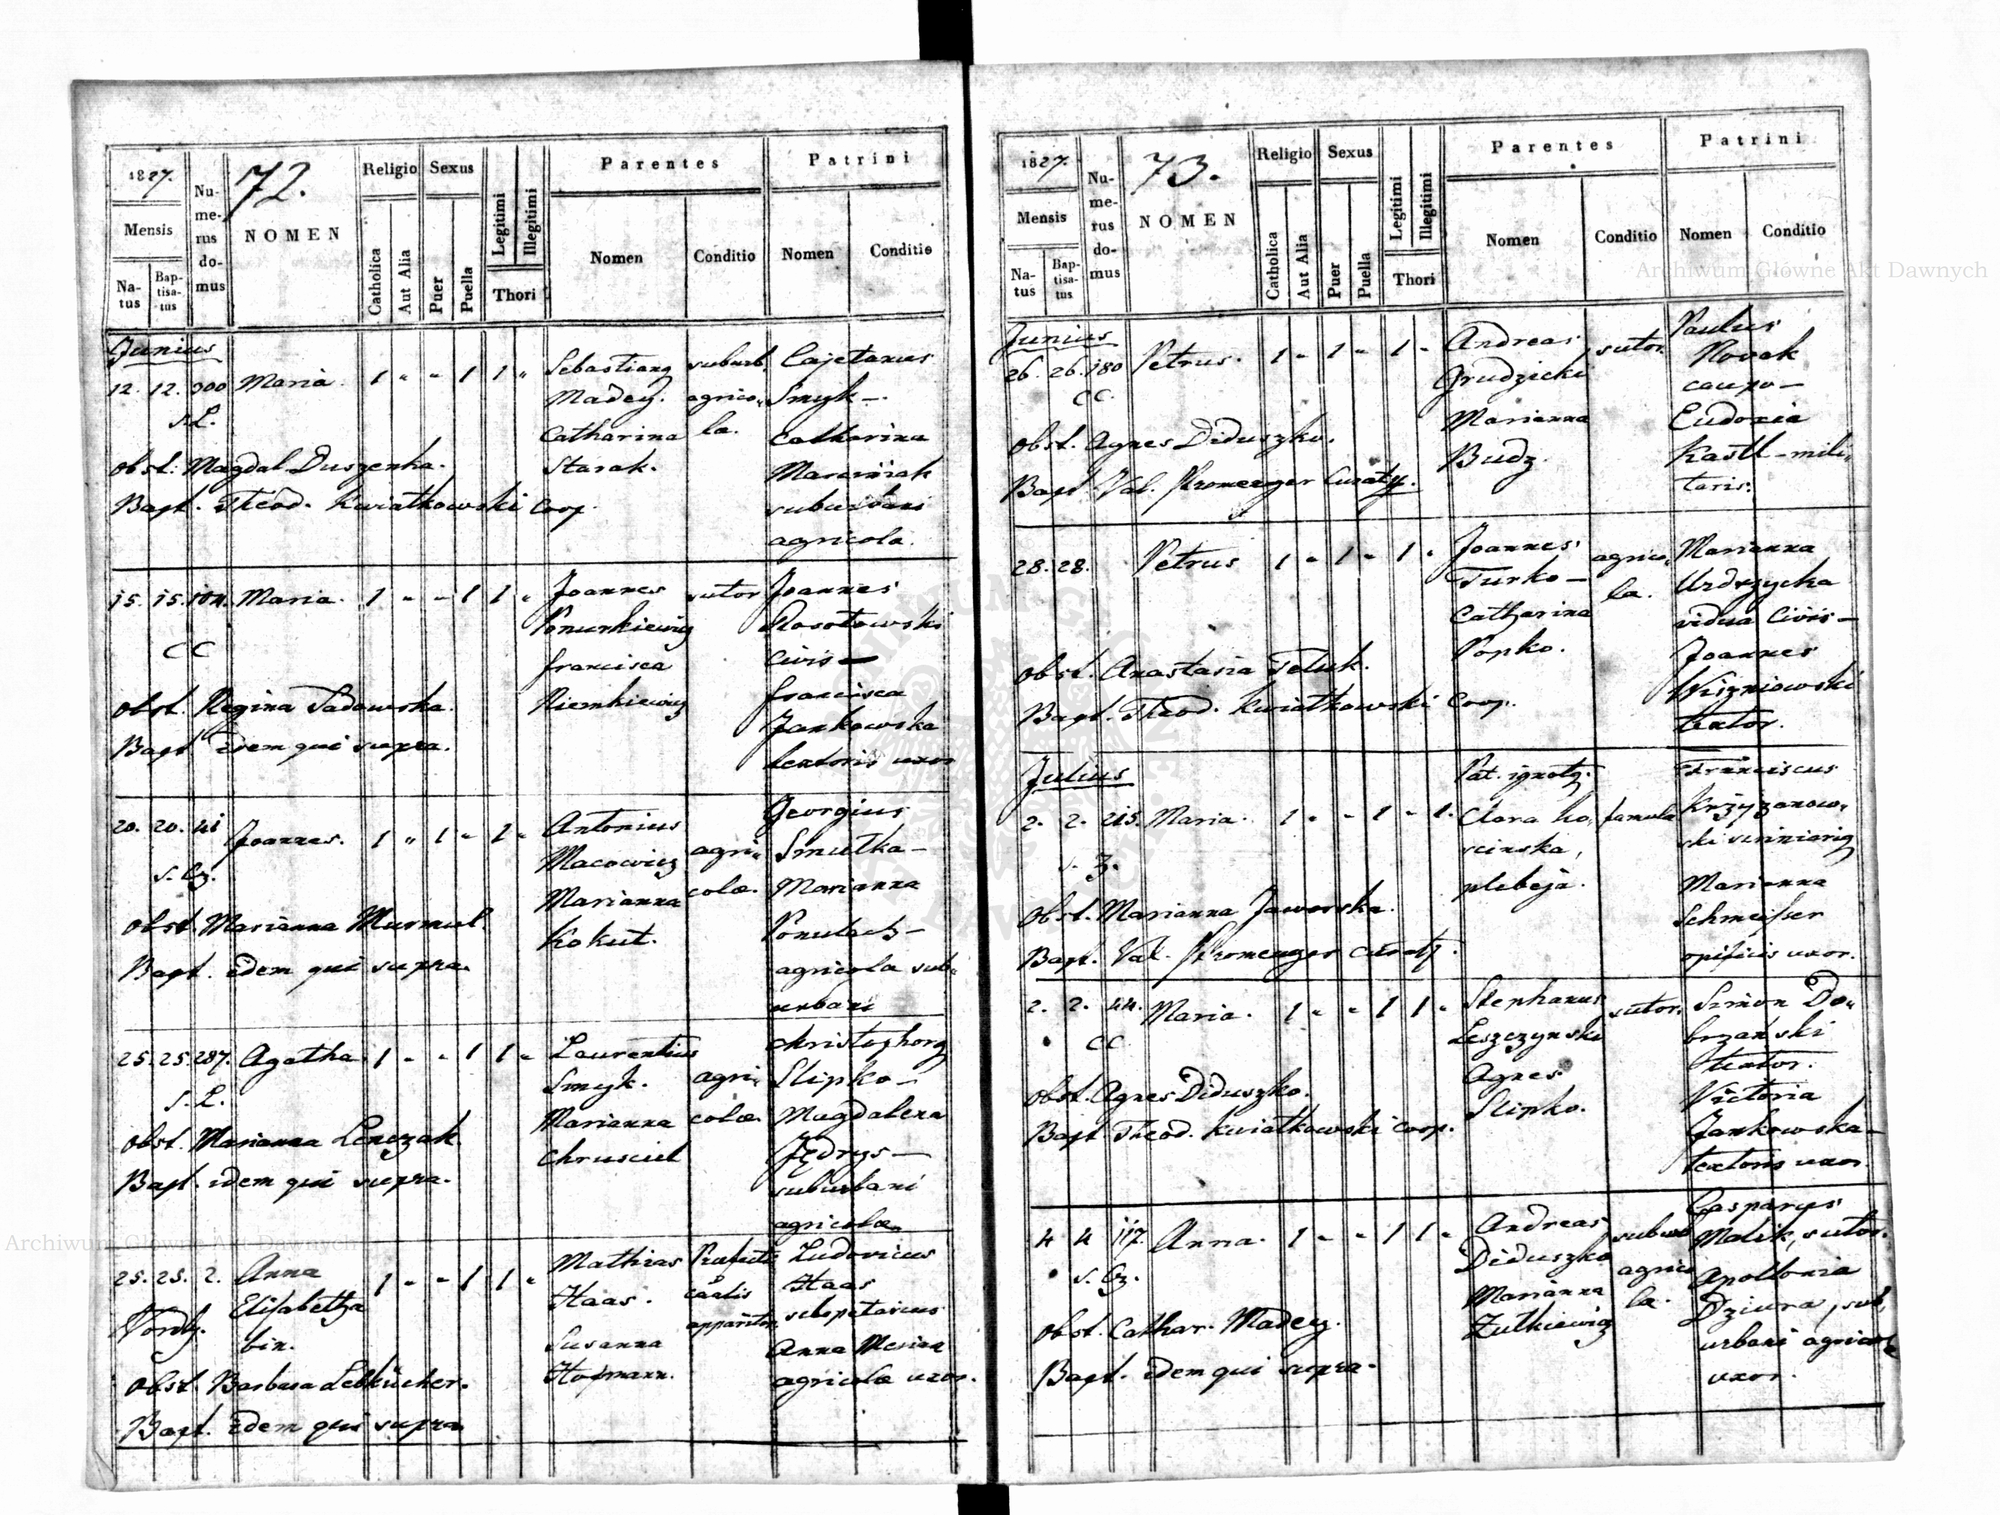 1827.
72.
Mensis
Natus
Baptisatus
Numerus domus
NOMEN
Religio
Catholica
Aut Alia
Sexus
Puer
Puella
Legitimi
Illegitimi
Thori
Parentes
Nomen
Conditio
Patrini
Nomen
Conditio
Junius
12. 12. 200 Maria. 1 " " 1 1 " Sebastiang suburb. Cajetanus
Madey. agrico- Smyk —.
s. L. Catharina la. Catharina
Obst: Magdal. Duszenka. Starak. Marciniak
Bapt. Theod. Kwiatkowski Coop. suburbani
agricola.
15. 15. Maria. 1 " " 1 1 " Joannes sutor Joannes
Ponurkiewicz Rosotowski
CC francisca Civis —
Obst. Regina Sadowska. Niemkiewicz francisca
Bapt idem qui supra. Jankowska
textoris uxor
20. 20. 41 Joannes. 1 " 1 " 1 " Antonius Georgius
Macowicz agri- Smutka —
s. Cz. Marianna colæ. Marianna
Obst. Marianna Murmul. Kokut.
Bapt. idem qui supra. agricola sub-
urbani
25. 25. 287. Agatha 1 " " 1 1 " Laurentius Christophorg
Smyk. agri- Slipko —
s. L. Marianna colæ. Magdalena
Obst. Marianna Lenczak. Chrusciel Jędrys —
Bapt. idem qui supra. suburbani
agricolæ.
25. 25. 2. Anna 1 " " 1 1 " Mathias Ludovicus
Elisabetha Haas. Haas
bin. Susanna apparitor sclopetarius
Hofmann. Anna Maria
Obst. Barbara Lebkücher. agricolæ uxor.
Bapt. idem qui supra
1827.
73.
Mensis
Natus
Baptisatus
Numerus domus
NOMEN
Religio
Catholica
Aut Alia
Sexus
Puer
Puella
Legitimi
Illegitimi
Thori
Parentes
Nomen
Conditio
Patrini
Nomen
Conditio
Junius
26. 26. 180 Petrus. 1 " 1 " 1 " Andreas sutor. Paulus
CC. Grudzicki Novak
Marianna caupo —
Obst. Agnes Diduszko. Budz. Eudoxia
Bapt. Val. Kromerger Curatg. Kastl - mili-
taris.
28. 28. Petrus 1 " 1 " 1 " Joannes agrico- Marianna
Turko — la. Urdzycka
Catharina vidua Civis —
Obst. Anastasia Teluk. Popko. Joannes
Bapt. Theod. Kwiatkowski Coop. Wiszniowski
textor.
Julius Pat. ignotg. Franciscus
2. 2. 215. Maria. 1 " " 1 " 1. Clara Ko- famula Krzyzanow-
s. Z. scinska, ski
plebeja. Marianna
Obst. Marianna Jaworska. Schmeisser
Bapt. Val. Kromerger curatg. opificis uxor.
2. 2. 44. Maria. 1 " " 1 1 " Stephanus sutor. Simon Do-
CC Leszczynski brzanski
Agnes textor.
Obst. Agnes Diduszko. Slipko. Victoria
Bapt Theod. Kwiatkowski Coop. Jankowska —
textoris uxor
4 4 117. Anna. 1 " " 1 1 " Andreas suburb Casparus
s. Cz. Diduszko agrico Malik, sutor.
Marianna la. Apollonia
Obst. Cathar. Madey. Zutkiewicz Dziura, sub-
Bapt. idem qui supra. urbani agricolæ
uxor.
Archiwum Główne Akt Dawnych
Archiwum Główne Akt Dawnych